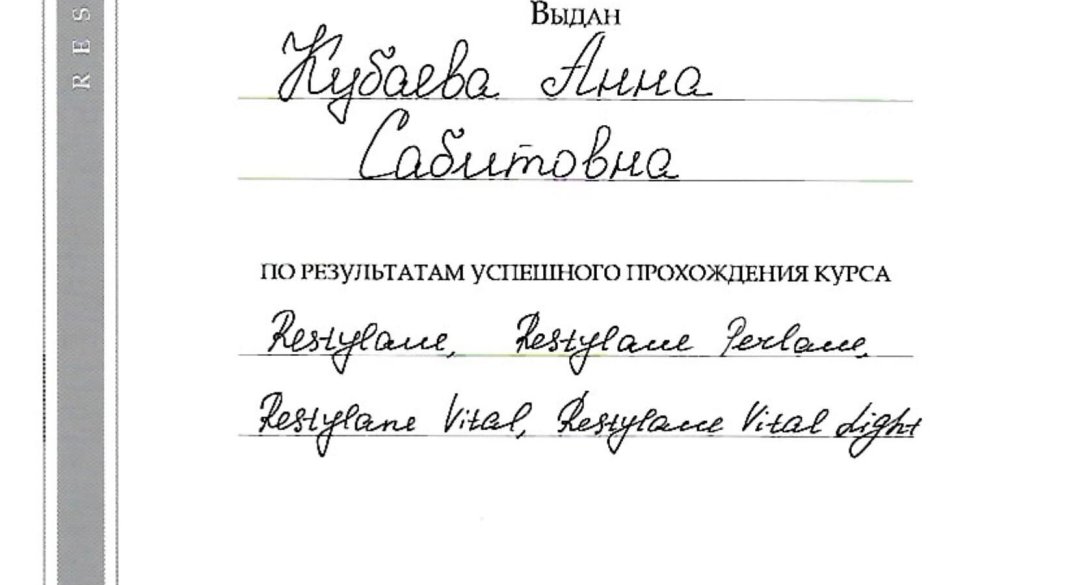 RES
Выдан
Кубаева Анна
Сабитовна
ПО РЕЗУЛЬТАТАМ УСПЕШНОГО ПРОХОЖДЕНИЯ КУРСА
Restylane, Restylane Perlane,
Restylane Vital, Restylane Vital Light